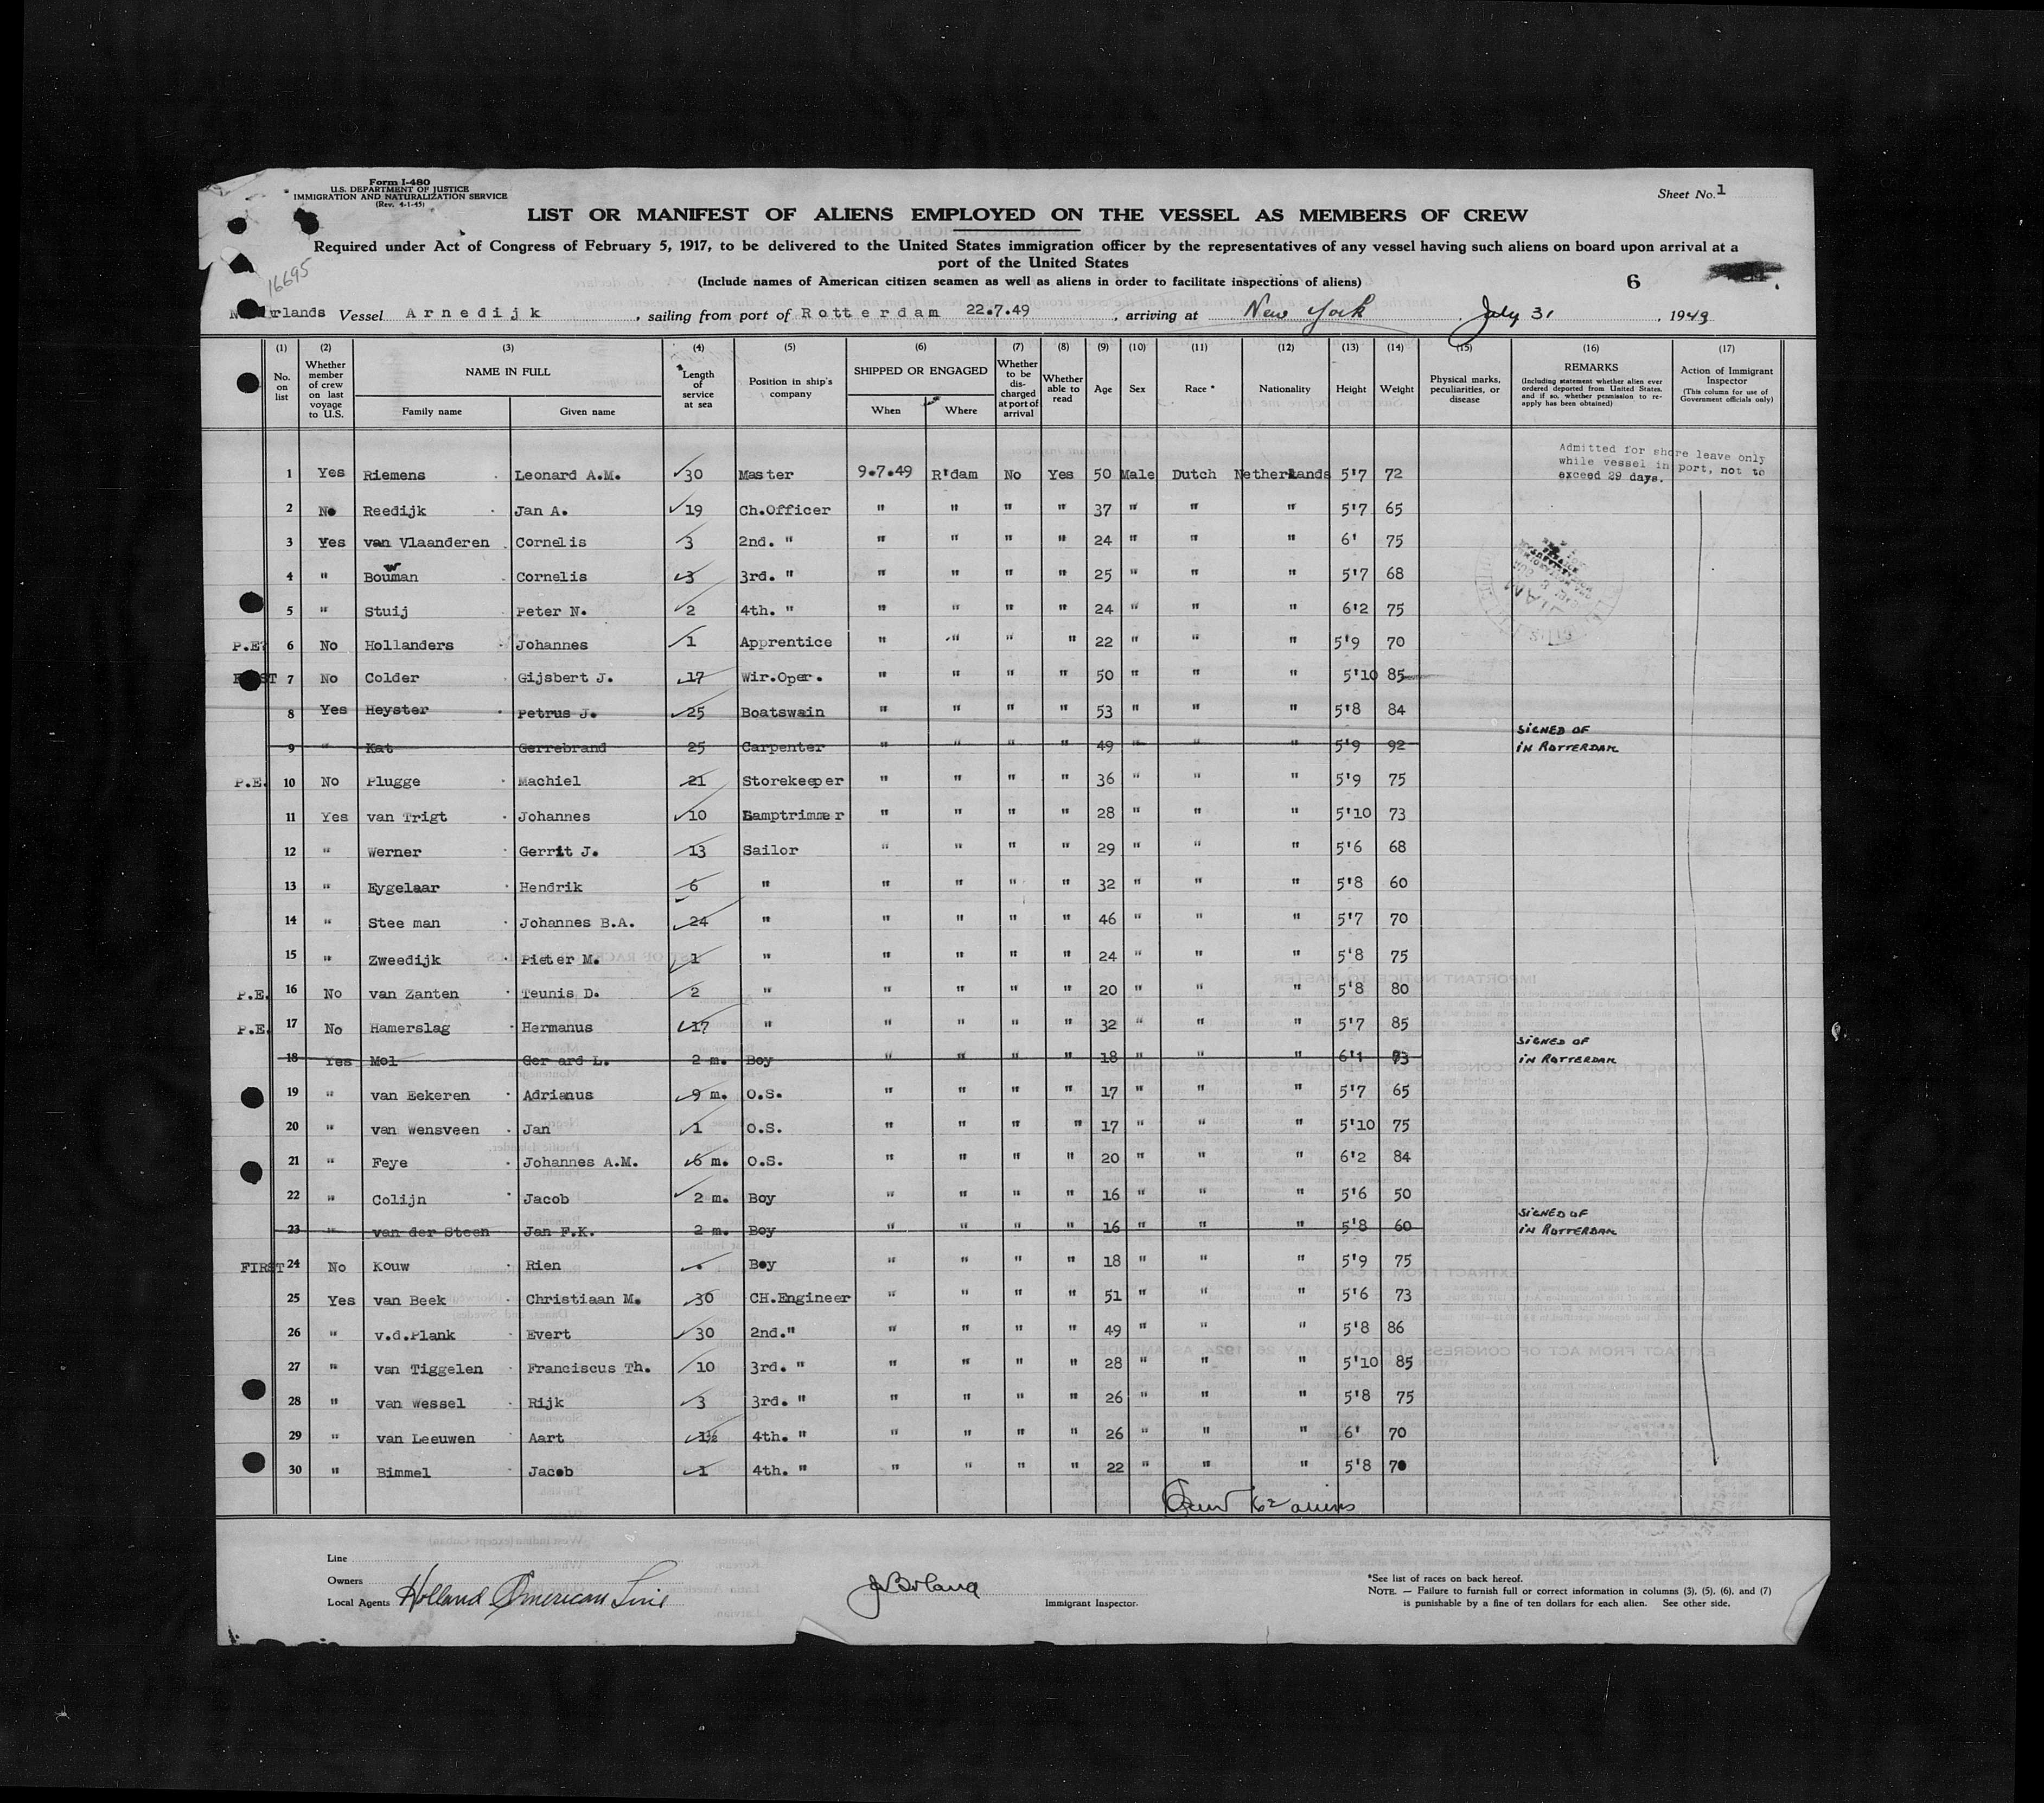 Form I-480
U.S. DEPARTMENT OF JUSTICE
IMMIGRATION AND NATURALIZATION SERVICE
(Rev. 4-1-45)
Sheet No. 1
LIST OR MANIFEST OF ALIENS EMPLOYED ON THE VESSEL AS MEMBERS OF CREW
Required under Act of Congress of February 5, 1917, to be delivered to the United States immigration officer by the representatives of any vessel having such aliens on board upon arrival at a
port of the United States
(Include names of American citizen seamen as well as aliens in order to facilitate inspections of aliens)
6
16695
rlands Vessel Arnedijk, sailing from port of Rotterdam 22.7.49, arriving at New York, July 31, 1949
(1) (2) (3) (4) (5) (6) (7) (8) (9) (10) (11) (12) (13) (14) (15) (16) (17)
No. on list
Whether member of crew on last voyage to U.S.
NAME IN FULL
Family name
Given name
Length of service at sea
Position in ship's company
SHIPPED OR ENGAGED
When
Where
Whether to be discharged at port of arrival
Whether able to read
Age
Sex
Race *
Nationality
Height
Weight
Physical marks, peculiarities, or disease
REMARKS
(Including statement whether alien ever ordered deported from United States, and if so, whether permission to re-apply has been obtained)
Action of Immigrant Inspector
(This column for use of Government officials only)
Admitted for shore leave only
while vessel in port, not to
exceed 29 days.
1 Yes Riemens Leonard A.M. 30 Master 9.7.49 R'dam No Yes 50 Male Dutch Netherlands 5'7 72
2 No Reedijk Jan A. 19 Ch.Officer " " " " 37 " " " 5'7 65
3 Yes van Vlaanderen Cornelis 3 2nd. " " " " " 24 " " " 6' 75
4 " Bouman w Cornelis 3 3rd. " " " " " 25 " " " 5'7 68
5 " Stuij Peter N. 2 4th. " " " " " 24 " " " 6'2 75
P.E. 6 No Hollanders Johannes 1 Apprentice " " " " 22 " " " 5'9 70
7 No Colder Gijsbert J. 17 Wir.Oper. " " " " 50 " " " 5'10 85
8 Yes Heyster Petrus J. 25 Boatswain " " " " 53 " " " 5'8 84
9 " Kat Gerrebrand 25 Carpenter " " " " 49 " " " 5'9 92 SIGNED OF IN ROTTERDAM
P.E. 10 No Plugge Machiel 21 Storekeeper " " " " 36 " " " 5'9 75
11 Yes van Trigt Johannes 10 Lamptrimmer " " " " 28 " " " 5'10 73
12 " Werner Gerrit J. 13 Sailor " " " " 29 " " " 5'6 68
13 " Eygelaar Hendrik 6 " " " " " 32 " " " 5'8 60
14 " Stee man Johannes B.A. 24 " " " " " 46 " " " 5'7 70
15 " Zweedijk Pieter M. 1 " " " " " 24 " " " 5'8 75
P.E. 16 No van Zanten Teunis D. 2 " " " " " 20 " " " 5'8 80
P.E. 17 No Hamerslag Hermanus 17 " " " " " 32 " " " 5'7 85
18 Yes Mol Ger ard L. 2 m. Boy " " " " 18 " " " 6'1 73 SIGNED OF IN ROTTERDAM
19 " van Eekeren Adrianus 9 m. O.S. " " " " 17 " " " 5'7 65
20 " van Wensveen Jan 1 O.S. " " " " 17 " " " 5'10 75
21 " Feye Johannes A.M. 6 m. O.S. " " " " 20 " " " 6'2 84
22 " Colijn Jacob 2 m. Boy " " " " 16 " " " 5'6 50
23 " van der Steen Jan F.K. 2 m. Boy " " " " 16 " " " 5'8 60 SIGNED OF IN ROTTERDAM
FIRST 24 No Kouw Rien . Boy " " " " 18 " " " 5'9 75
25 Yes van Beek Christiaan M. 30 CH.Engineer " " " " 51 " " " 5'6 73
26 " v.d.Plank Evert 30 2nd." " " " " 49 " " " 5'8 86
27 " van Tiggelen Franciscus Th. 10 3rd. " " " " " 28 " " " 5'10 85
28 " van Wessel Rijk 3 3rd. " " " " " 26 " " " 5'8 75
29 " van Leeuwen Aart 1½ 4th. " " " " " 26 " " " 6' 70
30 " Bimmel Jacob 1 4th. " " " " " 22 " " " 5'8 70
62 aliens
Line
Owners
Local Agents Holland American Line
Immigrant Inspector.
*See list of races on back hereof.
NOTE. — Failure to furnish full or correct information in columns (3), (5), (6), and (7)
is punishable by a fine of ten dollars for each alien. See other side.